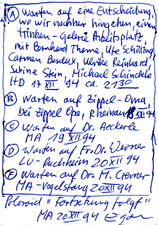 (A) Warten auf eine Entscheidung,
wo wir nachher hingehen, einen
Trinken - Galerie Arbeitsplatz
mit Bernhard Thome, Ute Schilling,
Carmen Ulrike Reinhard,
Sabine Stein, Michael
HD 17 XII 94 ca. 2130
(B) Warten auf Zippel-Oma,
bei Zippel Opa, Rheinau 18 XII 94
(C) Warten auf Dr. Aeckerle
MA 19 XII 94
(D) Warten auf Fr. Dr. Werner
LU-Buchheim 20 XII 94
(E) Warten auf Dr. M.
MA-Vogelstang 20 XII 94
"Fortsetzung folgt"
MA 20 XII 94